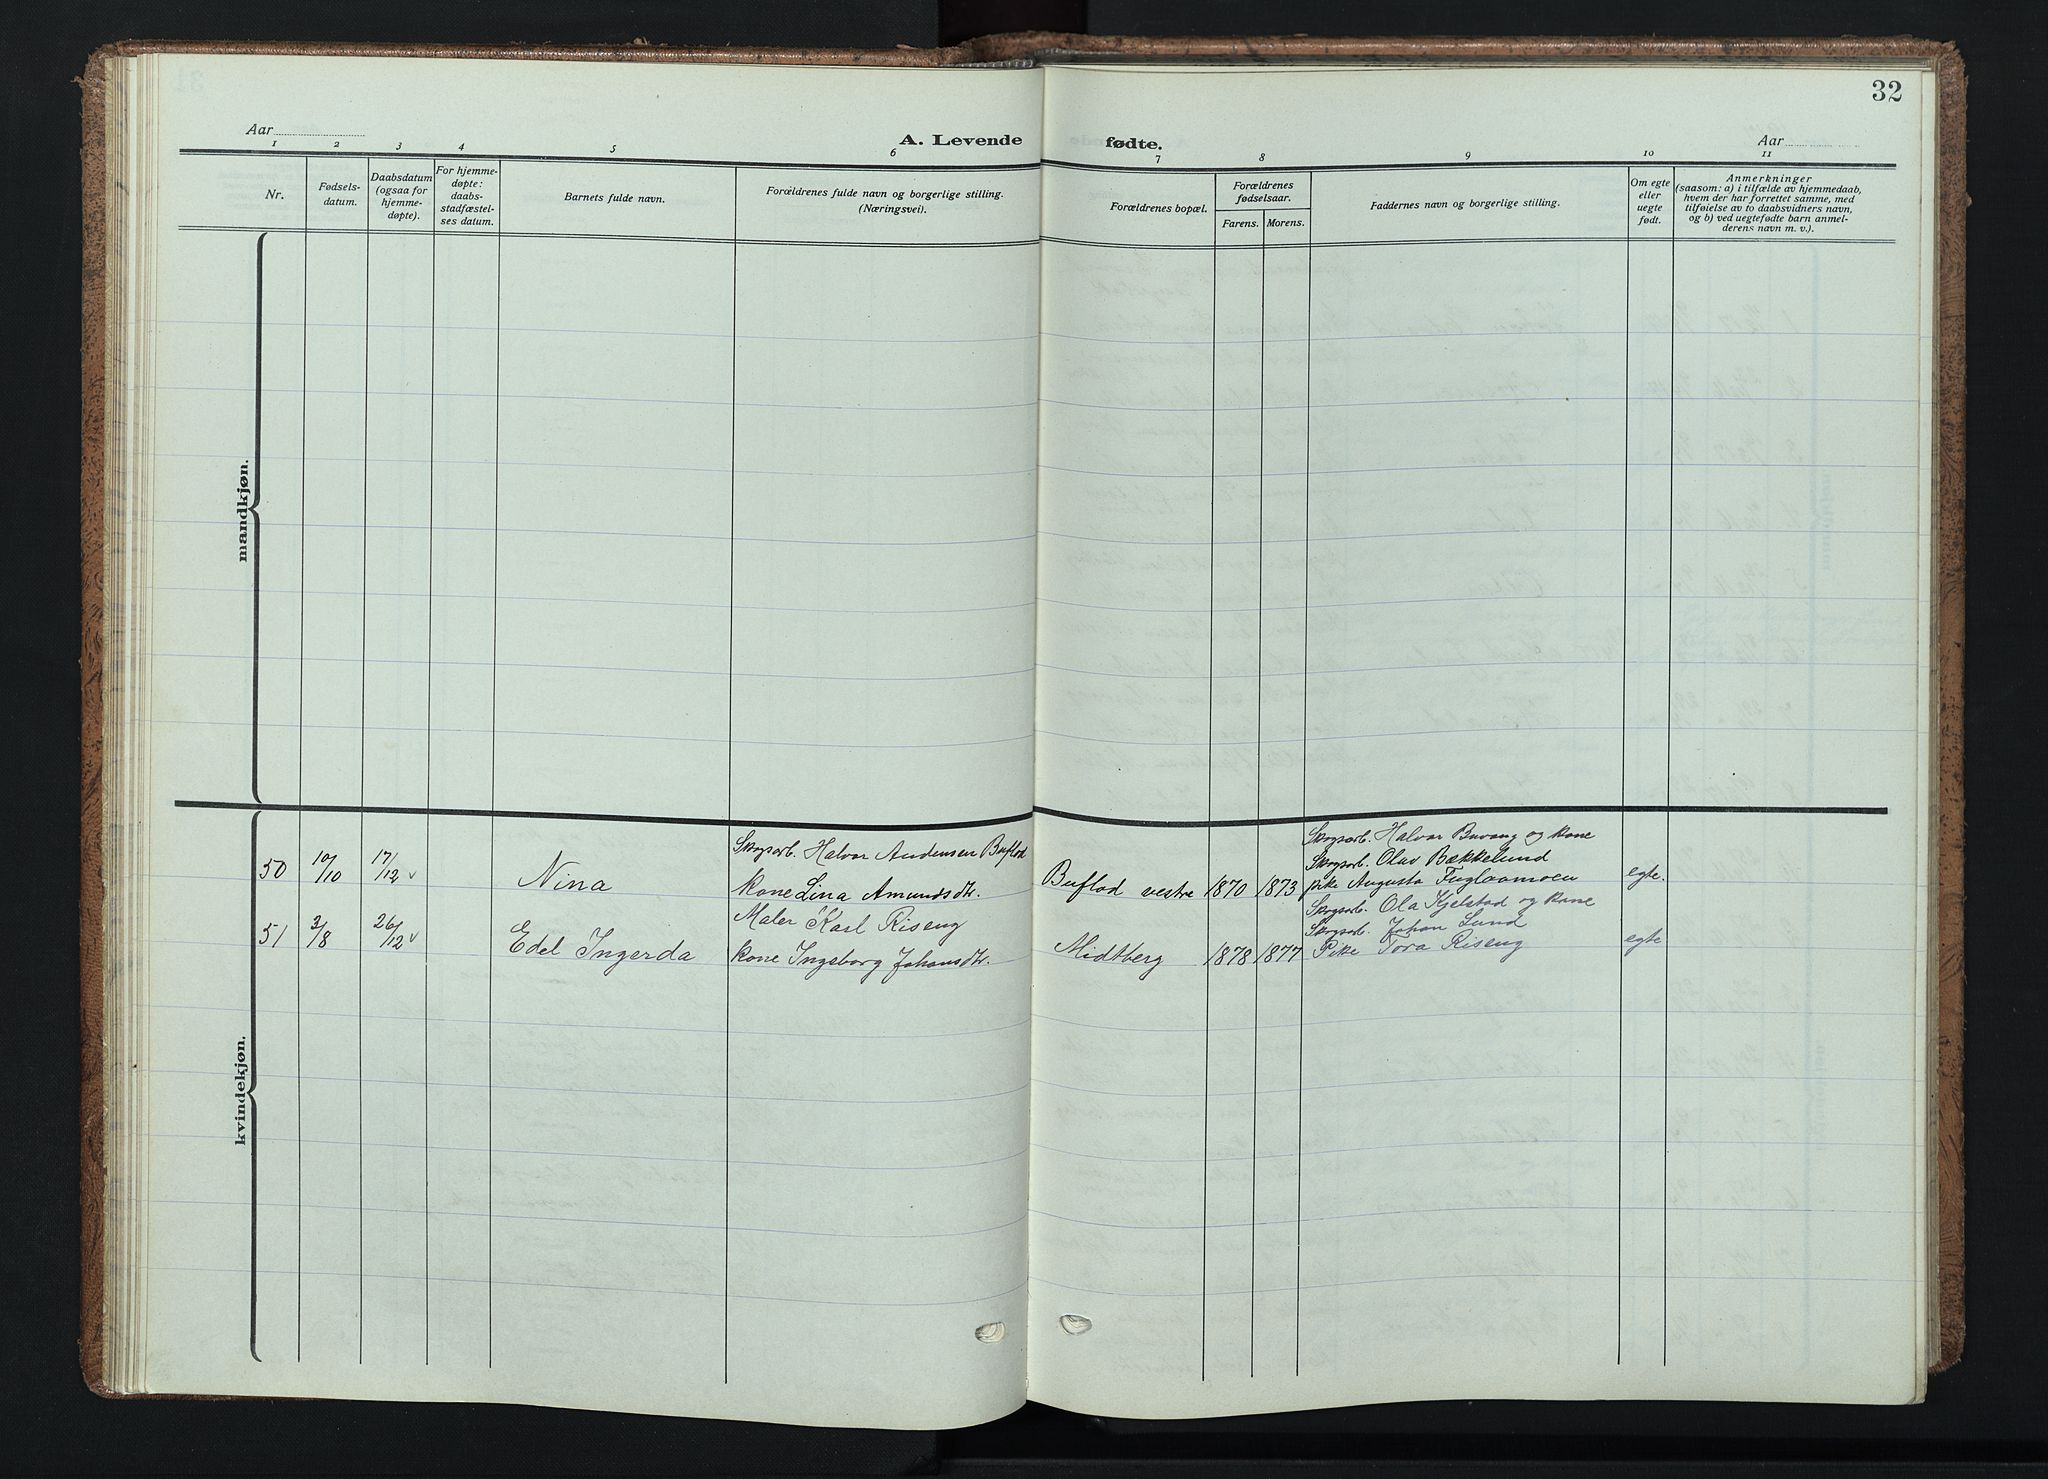 32
Aar
A. Levende fødte.
Aar
1 2 3 4 5 6 7 8 9 10 11
Nr.
Fødsels-
datum.
Daabsdatum
(ogsaa for
hjemme-
døpte).
For hjemme-
døpte:
daabs-
stadfæstel-
ses datum.
Barnets fulde navn.
Forældrenes fulde navn og borgerlige stilling.
(Næringsvei).
Forældrenes bopæl.
Forældrenes
fødselsaar.
Farens. Morens.
Faddernes navn og borgerlige stilling.
Om egte
eller
uegte
født.
Anmerkninger
(saasom: a) i tilfælde av hjemmedaab,
hvem der har forrettet samme, med
tilføielse av to daabsvidners navn,
og b) ved uegtefødte barn anmel-
derens navn m. v.).
mandkjøn.
kvindekjøn.
50 10/10 17/12 v Nina
Skogsarb. Halvor Andensen Buflod
kone Lina Amundsdtr.
Buflod vestre 1870 1873
Skogsarb. Halvor Buvang og kone
Skogsarb. Olav Bækkelund
pike Augusta Fuglaamoen
egte.
51 3/8 26/12 v Edel Ingerda
Maler Karl Riseng
kone Ingeborg Johansdtr.
Midtberg 1878 1877
Skogsarb. Ola Kjelstad og kone
Skogsarb. Johan Lund
Pike Tora Riseng
egte